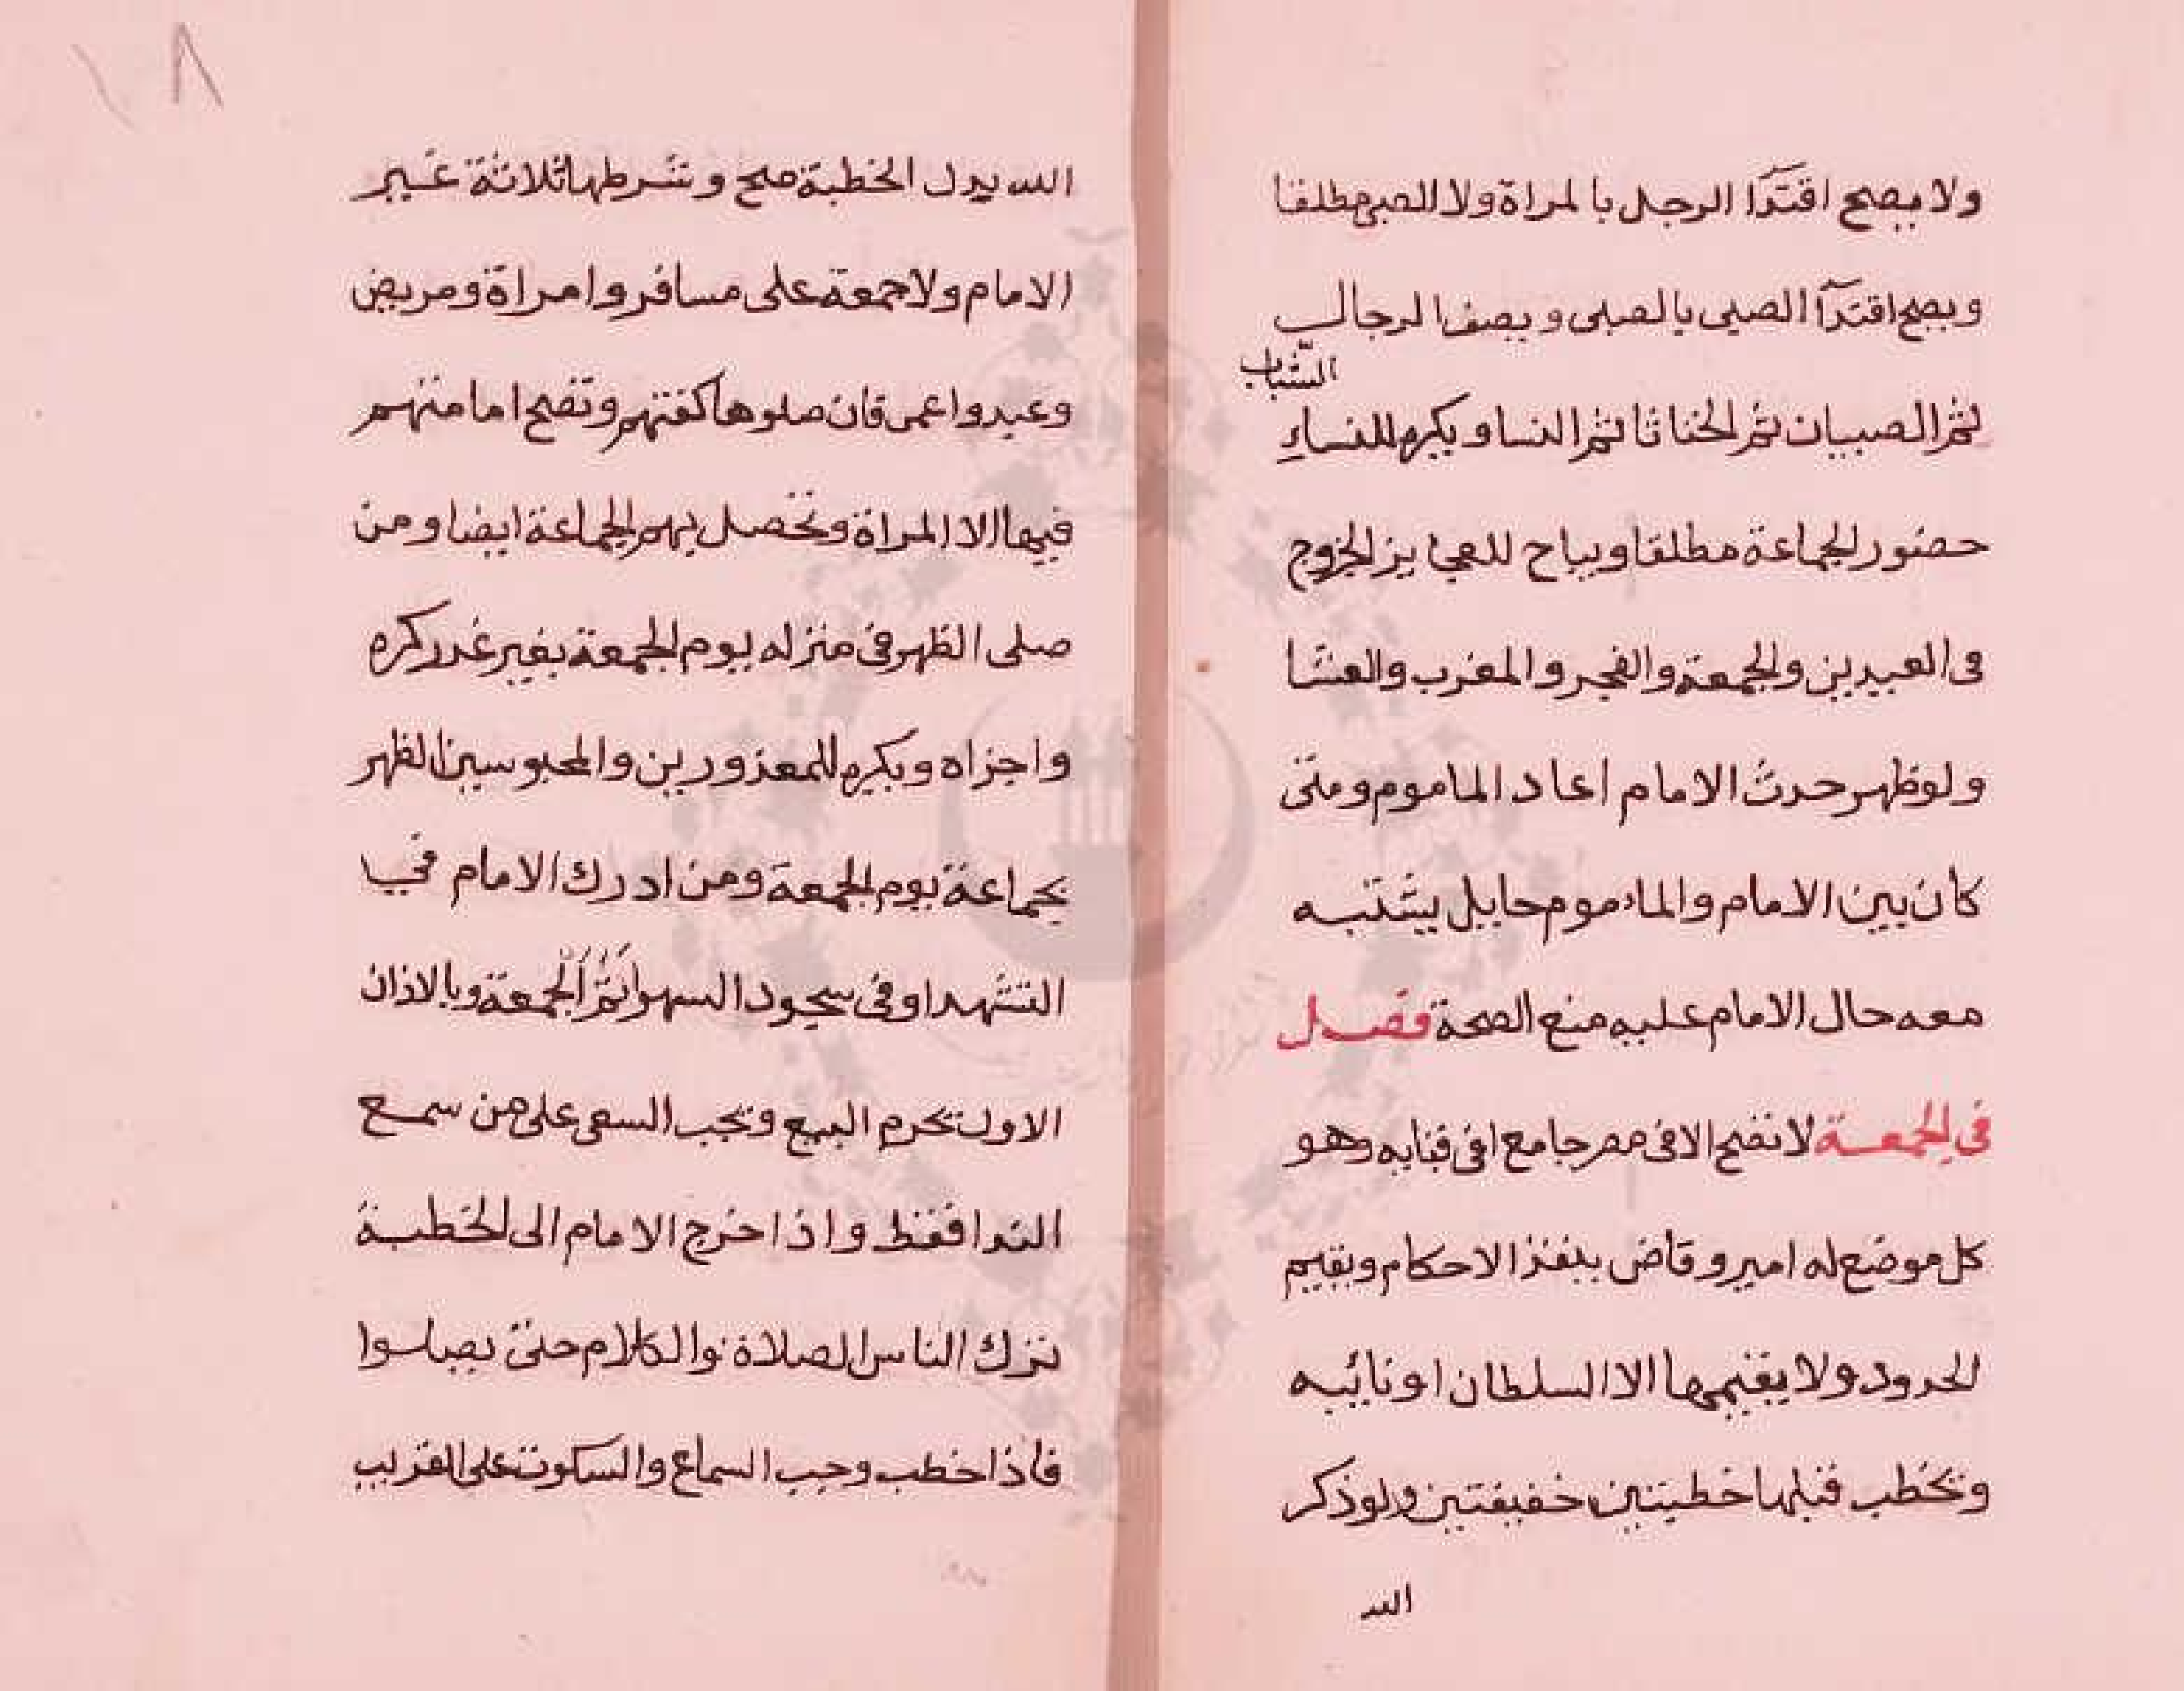 ولا يصح اقتدآ الرجل بالمراة ولا الصبى مطلقا
ويصح اقتدآ الصبى بالصبى ويصف الرجال
الشباب
ثم الصبيان ثم الخناثا ثم النسا ويكره للنساء
حضور الجماعة مطلقا ويباح للعجايز الخروج
فى العيدين والجمعة والفجر والمغرب والعشا
ولو ظهر حدث الامام اعاد الماموم ومتى
كان بين الامام والماموم حايل يشتبه
معه حال الامام عليه منع الصحة فصل
فى الجمعة لا تصح الا فى مصر جامع افى فنايه وهو
كل موضع له امير وقاض ينفذ الاحكام ويقيم
الحدود ولا يقيمها الا السلطان او نائبه
ويخطب قبلها خطبتين خفيفتين ولو ذكر
الله
٨
الله بدل الخطبة صح وشرطها ثلاثة غير
الامام ولا جمعة على مسافر وامراة ومريض
وعبد واعمى فان صلوها كفتهم وتصح امامتهم
فيها الا المراة وتحصل بهم الجماعة ايضا ومن
صلى الظهر فى منزله يوم الجمعة بغير عذر كره
واجزاه ويكره للمعذورين والمحبوسين الظهر
بجماعة يوم الجمعة ومن ادرك الامام فى
التشهد او فى سجود السهو اتم الجمعة وبالاذان
الاول يحرم البيع ويجب السعى على من سمع
الندا فقط واذا خرج الامام الى الخطبة
ترك الناس الصلاة والكلام حتى يصلوا
فاذا خطب وجب السماع والسكوت على القريب